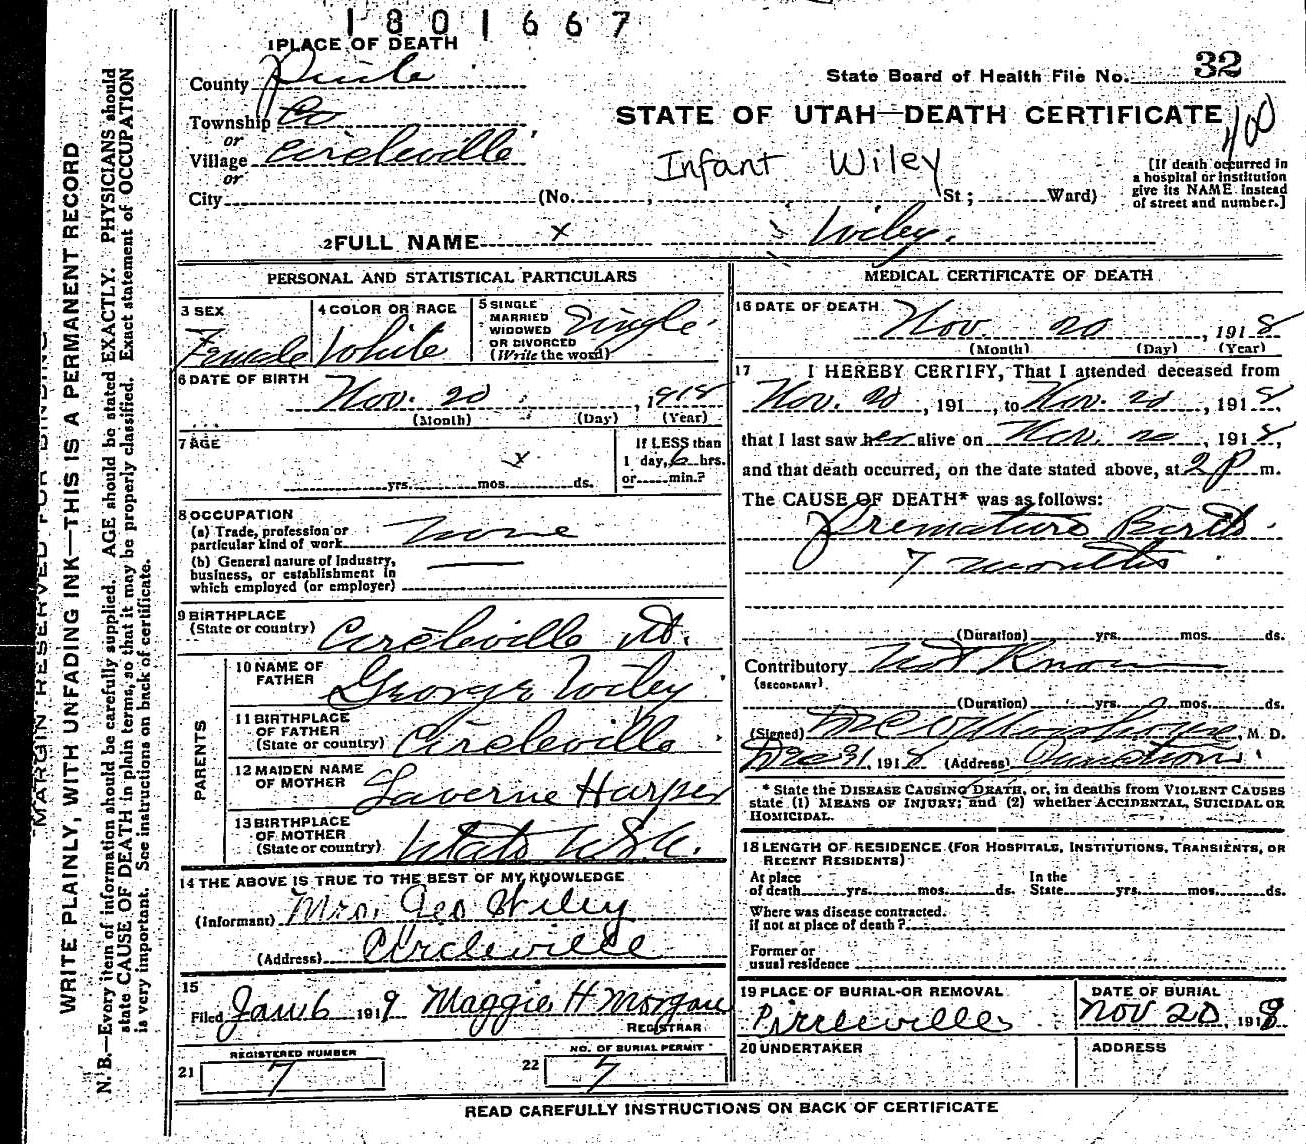 1801667
1 PLACE OF DEATH
County Piute
State Board of Health File No. 32
Township Co
STATE OF UTAH—DEATH CERTIFICATE
or
Village Circleville
Infant Wiley
[If death occurred in
a hospital or institution
give its NAME instead
of street and number.]
or
City (No. , St ; Ward)
2 FULL NAME x Wiley.
PERSONAL AND STATISTICAL PARTICULARS
3 SEX
Female
4 COLOR OR RACE
White
5 SINGLE
MARRIED
WIDOWED
OR DIVORCED
(Write the word)
Single
6 DATE OF BIRTH
Nov. 20, 1918
(Month) (Day) (Year)
7 AGE
yrs. mos. ds.
If LESS than
1 day, 6 hrs.
or min.?
8 OCCUPATION
(a) Trade, profession or
particular kind of work none
(b) General nature of industry,
business, or establishment in
which employed (or employer)
9 BIRTHPLACE
(State or country) Circleville Ut.
PARENTS
10 NAME OF
FATHER George Wiley
11 BIRTHPLACE
OF FATHER
(State or country) Circleville
12 MAIDEN NAME
OF MOTHER Laverne Harper
13 BIRTHPLACE
OF MOTHER
(State or country)
14 THE ABOVE IS TRUE TO THE BEST OF MY KNOWLEDGE
(Informant) Mrs. Geo Wiley
(Address) Circleville
15
Filed Jan 6 1919 Maggie H Morgan
REGISTRAR
REGISTERED NUMBER
21 7
NO. OF BURIAL PERMIT
22 7
MEDICAL CERTIFICATE OF DEATH
16 DATE OF DEATH
Nov. 20, 1918
(Month) (Day) (Year)
17 I HEREBY CERTIFY, That I attended deceased from
Nov. 20, 191 , to Nov. 20, 1918,
that I last saw her alive on Nov. 20, 1918,
and that death occurred, on the date stated above, at 2 p m.
The CAUSE OF DEATH* was as follows:
Premature Birth.
7 months
(Duration) yrs. mos. ds.
Contributory Not Known
(SECONDARY)
(Duration) yrs. mos. ds.
(Signed) M. D.
Dec 31, 1918 (Address)
* State the DISEASE CAUSING DEATH, or, in deaths from VIOLENT CAUSES
state (1) MEANS OF INJURY; and (2) whether ACCIDENTAL, SUICIDAL OR
HOMICIDAL.
18 LENGTH OF RESIDENCE (FOR HOSPITALS, INSTITUTIONS, TRANSIENTS, OR
RECENT RESIDENTS)
At place
of death yrs. mos. ds.
In the
State yrs. mos. ds.
Where was disease contracted.
if not at place of death?
Former or
usual residence
19 PLACE OF BURIAL OR REMOVAL
Circleville
DATE OF BURIAL
Nov 20, 1918
20 UNDERTAKER
ADDRESS
READ CAREFULLY INSTRUCTIONS ON BACK OF CERTIFICATE
MARGIN RESERVED FOR BINDING
WRITE PLAINLY, WITH UNFADING INK—THIS IS A PERMANENT RECORD
N. B.—Every item of information should be carefully supplied. AGE should be stated EXACTLY. PHYSICIANS should
state CAUSE OF DEATH in plain terms, so that it may be properly classified. Exact statement of OCCUPATION
is very important. See instructions on back of certificate.